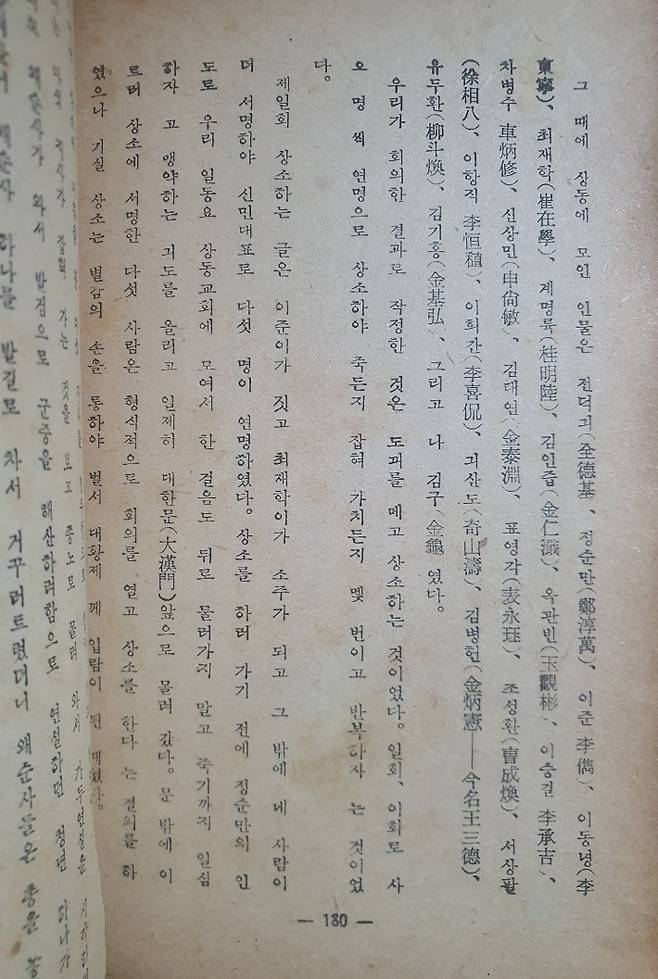 그 때에 상동에 모인 인물은 전덕긔(全德基)、정순만(鄭淳萬)、이준 李儁)、이동녕(李
東寧)、최재학(崔在學)、계명륙(桂明陸)、김인즙(金仁濈)、옥관빈(玉觀彬)、이승길 李承吉)、
차병수 車炳修)、신상민(申尙敏)、김태연(金泰淵)、표영각(表永珏)、조성환(曺成煥)、서상팔
(徐相八)、이항직 李恒稙)、이희간(李喜侃)、긔산도(奇山濤)、김병헌(金炳憲——今名王三德)、
유두환(柳斗煥)、김기홍(金基弘)、그리고 나 김구(金龜 였다。
우리가 회의한 결과로 작정한 것은 도끼를 메고 상소하는 것이었다。일회、이회로 사
오 명 씩 연명으로 상소하야 죽든지 잡혀 가치든지 몇 번이고 반복하자 는 것이었
다。
제일회 상소하는 글은 이준이가 짓고 최재학이가 소주가 되고 그 밖에 네 사람이
더 서명하야 신민대표로 다섯 명이 연명하였다。상소를 하러 가기 전에 정순만의 인
도로 우리 일동요 상동교회에 모여서 한 걸음도 뒤로 물러가지 말고 죽기까지 일심
하자 고 맹약하는 긔도를 올리고 일제히 대한문(大漢門)앞으로 몰려 갔다。문 밖에 이
르러 상소에 서명한 다섯 사람은 형식적으로 회의를 열고 상소를 한다 는 결의를 하
였으나 기실 상소는 별감의 손을 통하야 벌서 대황제 께 입람이 된 때였다。
— 180 —
가는 것을 보고 종노로 몰려 와서 가두연설을
와서 발검으로 군중을 해산하려함으로 연설하던 청년 하나가
하나를 발길로 차서 거꾸러트렸더니 왜순사들은 총을